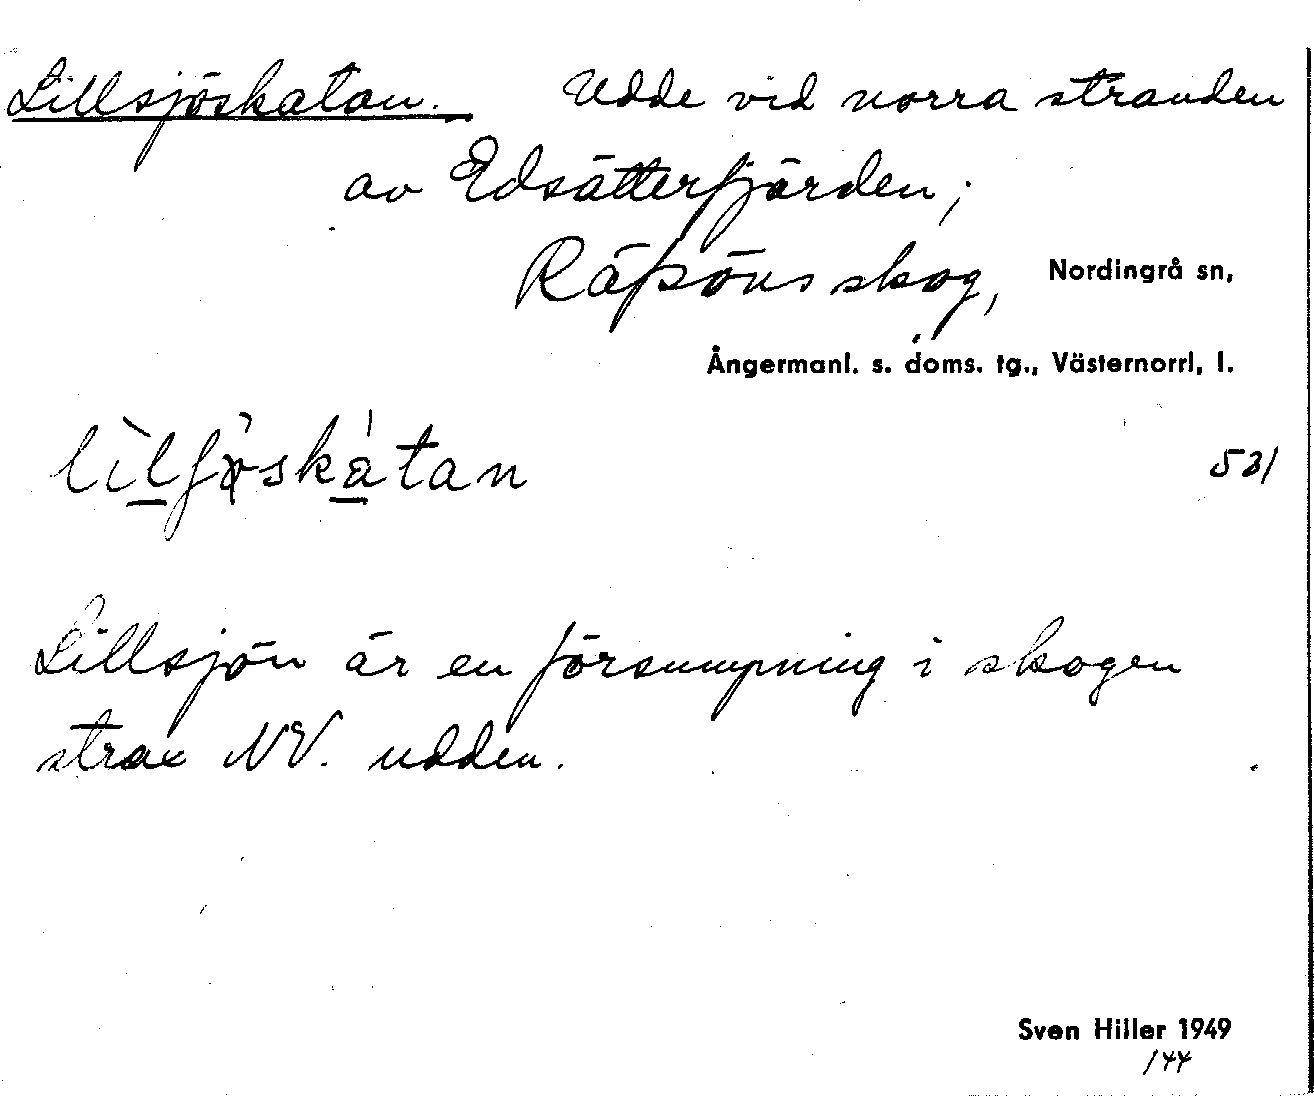 Lillsjöskatan. Udde vid norra stranden
av Edsätterfjärden;
Räpsöns skog, Nordingrå sn,
Ångermanl. s. doms. tg., Västernorrl. l.
531
Lillsjön är en försumpning i skogen
strax NV. udden.
Sven Hiller 1949
144